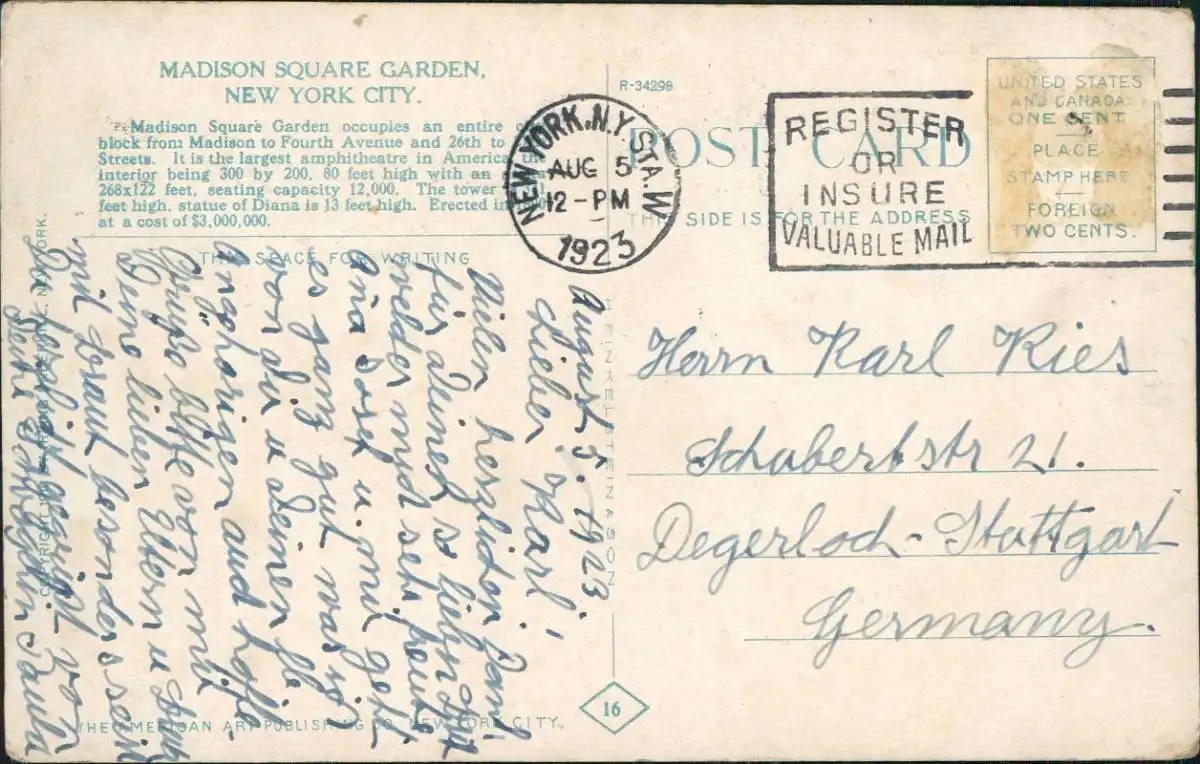 MADISON SQUARE GARDEN,
NEW YORK CITY.
Madison Square Garden occupies an entire
block from Madison to Fourth Avenue and 26th to
Streets. It is the largest amphitheatre in America, the
interior being 300 by 200, 80 feet high with an
268x122 feet, seating capacity 12,000. The tower
feet high, statue of Diana is 13 feet high. Erected in
at a cost of $3,000,000.
THIS SPACE FOR WRITING
R-34298
POST CARD
THIS SIDE IS FOR THE ADDRESS
NEW YORK, N.Y. STA. W
AUG 5
12-PM
1923
REGISTER
OR
INSURE
VALUABLE MAIL
UNITED STATES
AND CANADA
ONE CENT
PLACE
STAMP HERE
FOREIGN
TWO CENTS.
August 5. 1923.
Lieber Karl!
Vielen herzlichen Dank
für Deinen so lieben
und sehr freute
Josef u. mir geht
es ganz gut was ist
von Dir u Deinen
Angehörigen auch hoffe.
Grüße bitte von mir
Deine lieben Eltern u
mit Braut besonders sei
herzlich gegrüßt von
Paula
Herrn Karl Ries
Schubertstr 21.
Degerloch-Stuttgart
Germany.
HEINKELSTEIN & SON
THE AMERICAN ART PUBLISHING CO. NEW YORK CITY.
16